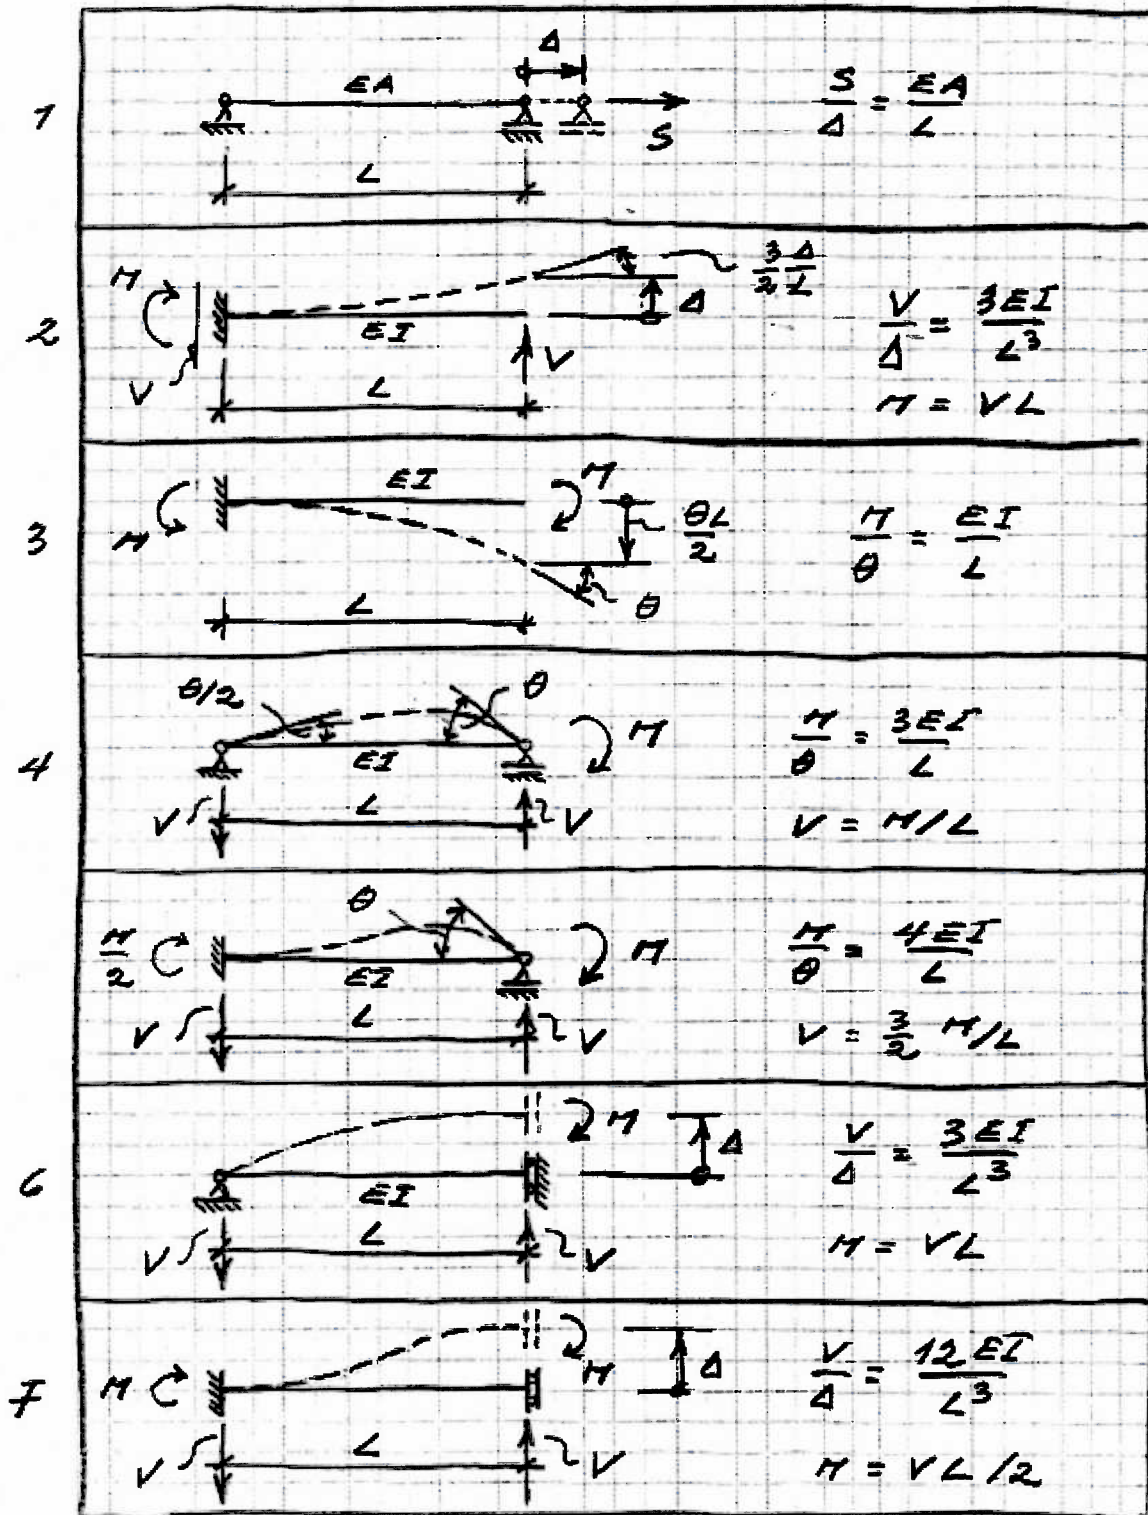 1
Δ
EA
S
L
S/Δ = EA/L
2
M
V
EI
L
V
Δ
3/2 Δ/L
V/Δ = 3EI/L³
M = VL
3
M
EI
L
M
θL/2
θ
M/θ = EI/L
4
θ/2
θ
EI
M
V
L
V
M/θ = 3EI/L
V = M/L
M/2
θ
EI
M
V
L
V
M/θ = 4EI/L
V = 3/2 M/L
6
EI
M
Δ
V
L
V
V/Δ = 3EI/L³
M = VL
7
M
M
Δ
V
L
V
V/Δ = 12EI/L³
M = VL/2